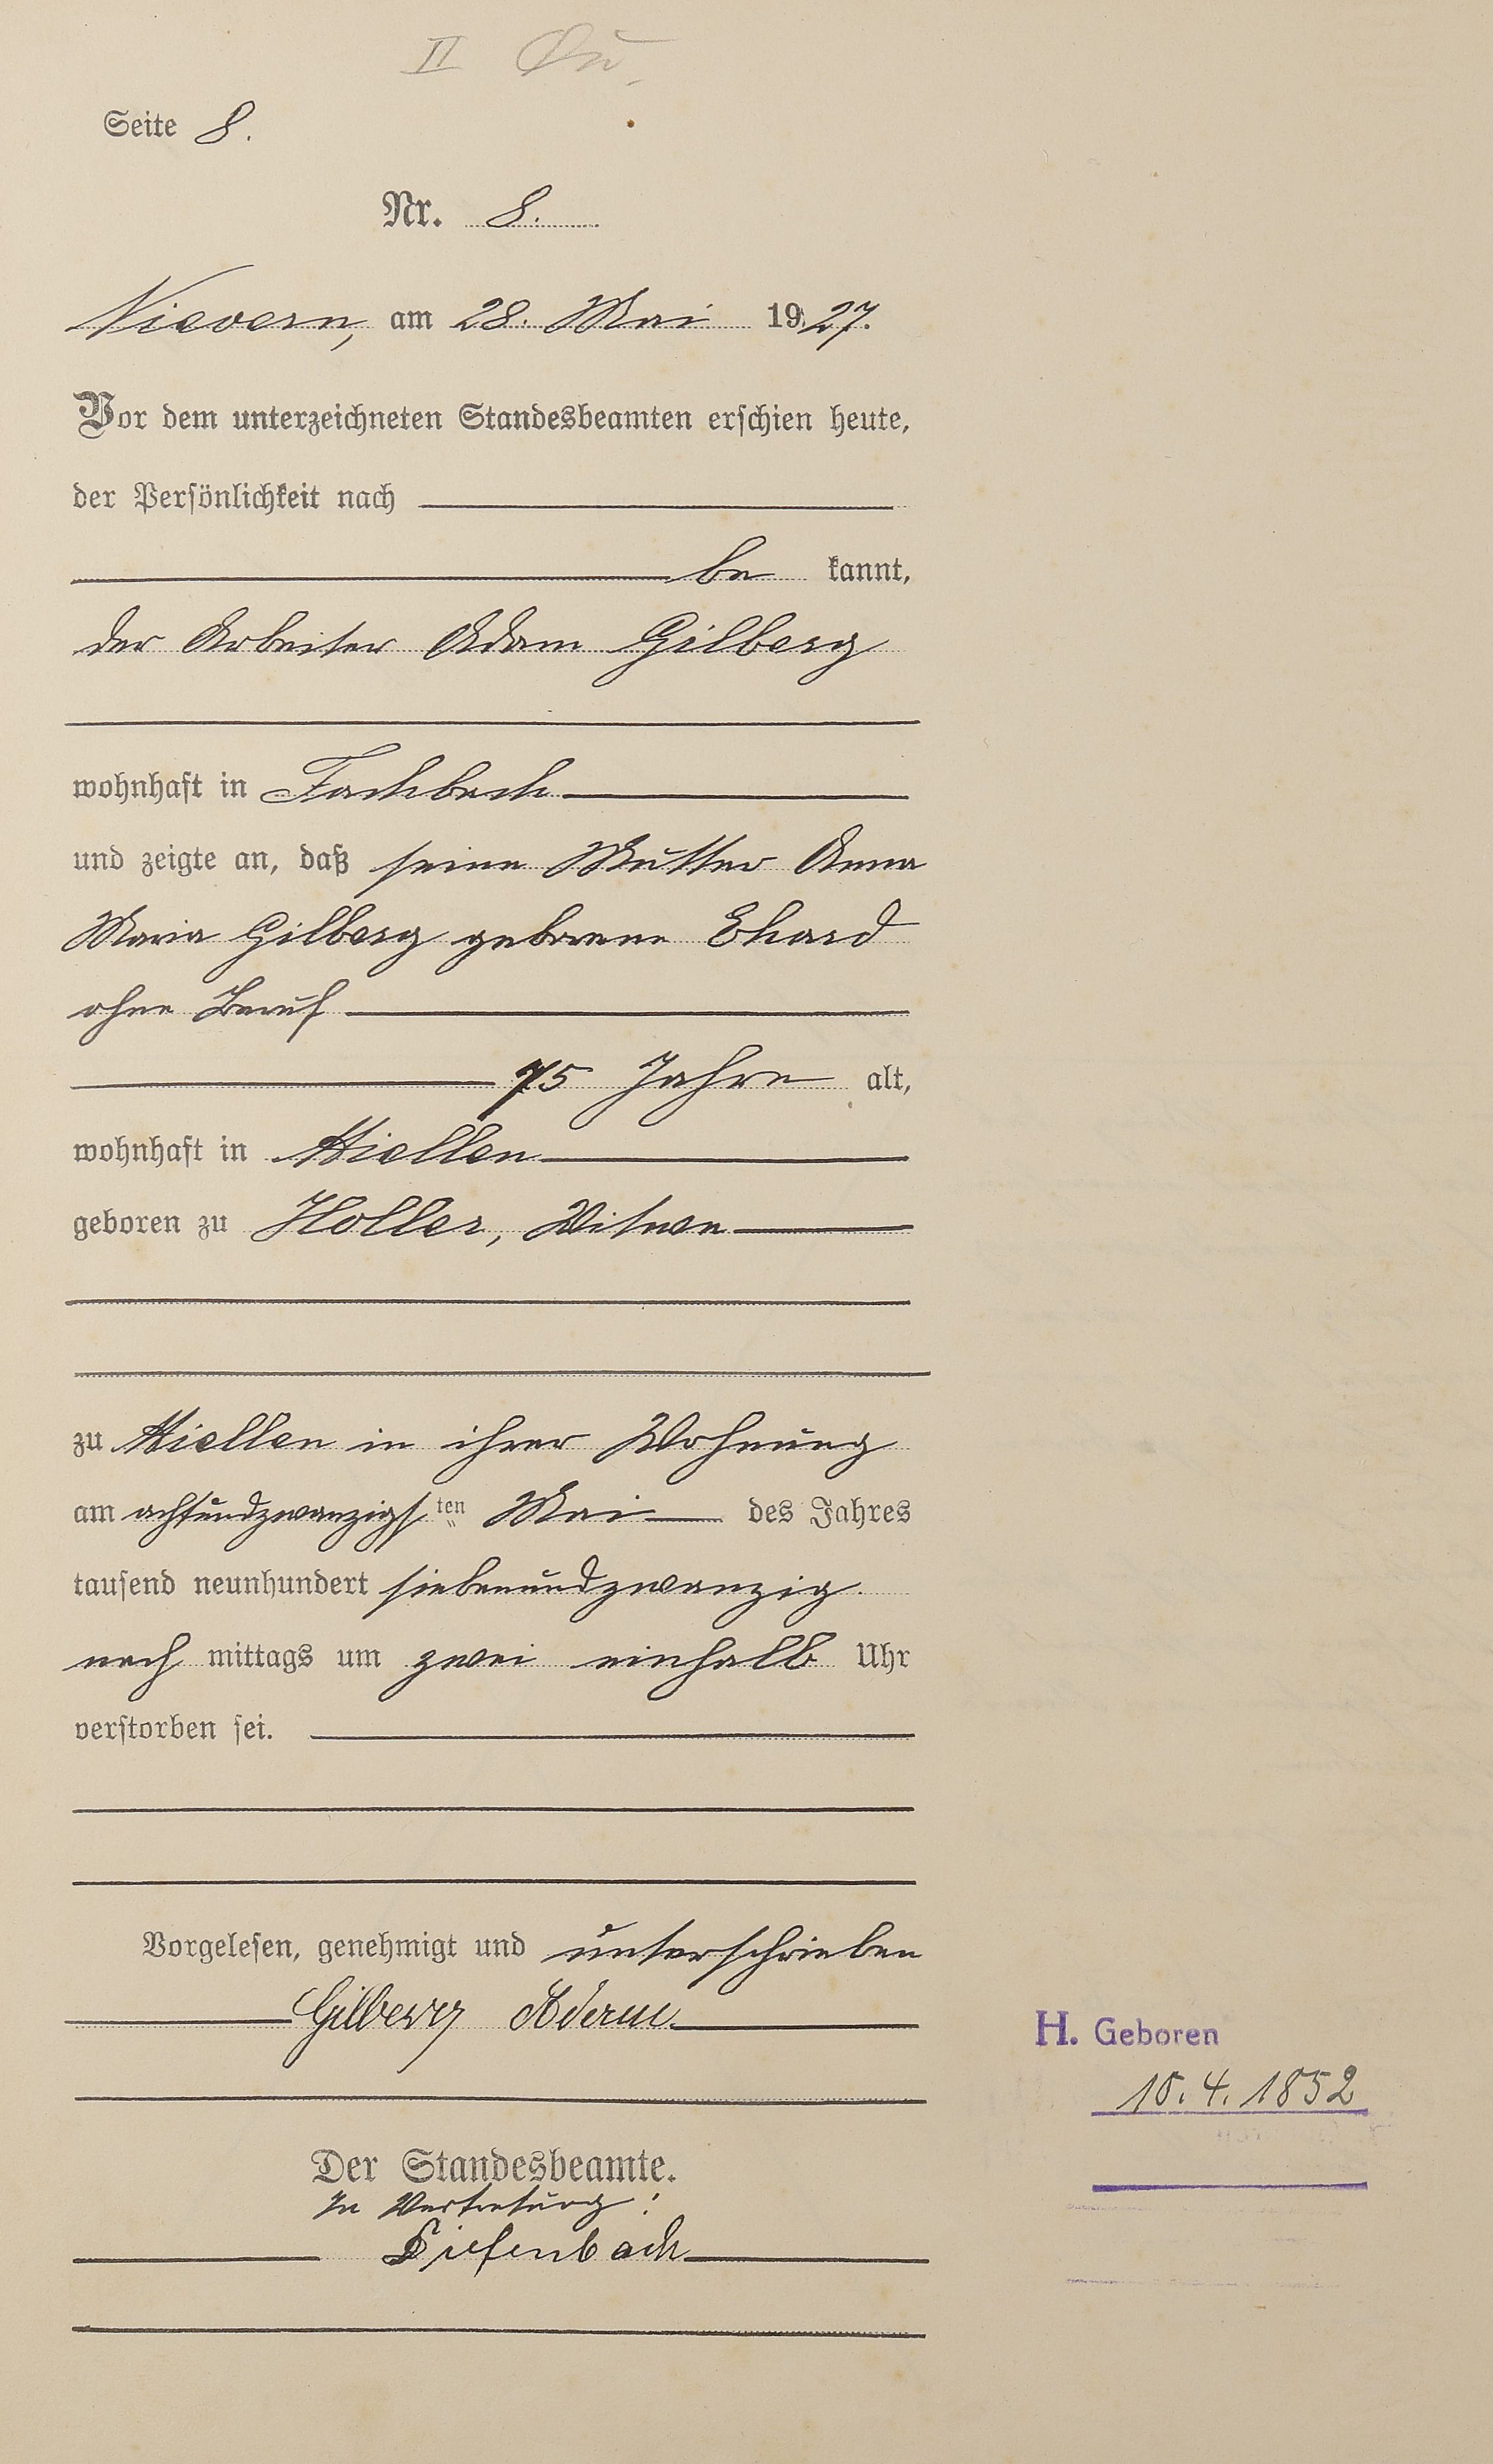 II
Seite 8.
Nr. 8.
Nievern, am 28. Mai 1927.
Vor dem unterzeichneten Standesbeamten erschien heute,
der Persönlichkeit nach
be kannt,
der Arbeiter Adam Gilberg
wohnhaft in Fachbach
und zeigte an, daß seine Mutter Anna
Maria Gilberg geborene Ehard
ohne Beruf
75 Jahre alt,
wohnhaft in Miellen
geboren zu Holler, Witwe
zu Miellen in ihrer Wohnung
am achtundzwanzigsten Mai des Jahres
tausend neunhundert siebenundzwanzig
nach mittags um zwei einhalb Uhr
verstorben sei.
Vorgelesen, genehmigt und unterschrieben
Gilberg Adam.
Der Standesbeamte.
In Vertretung:
Diefenbach
H. Geboren
10.4.1852